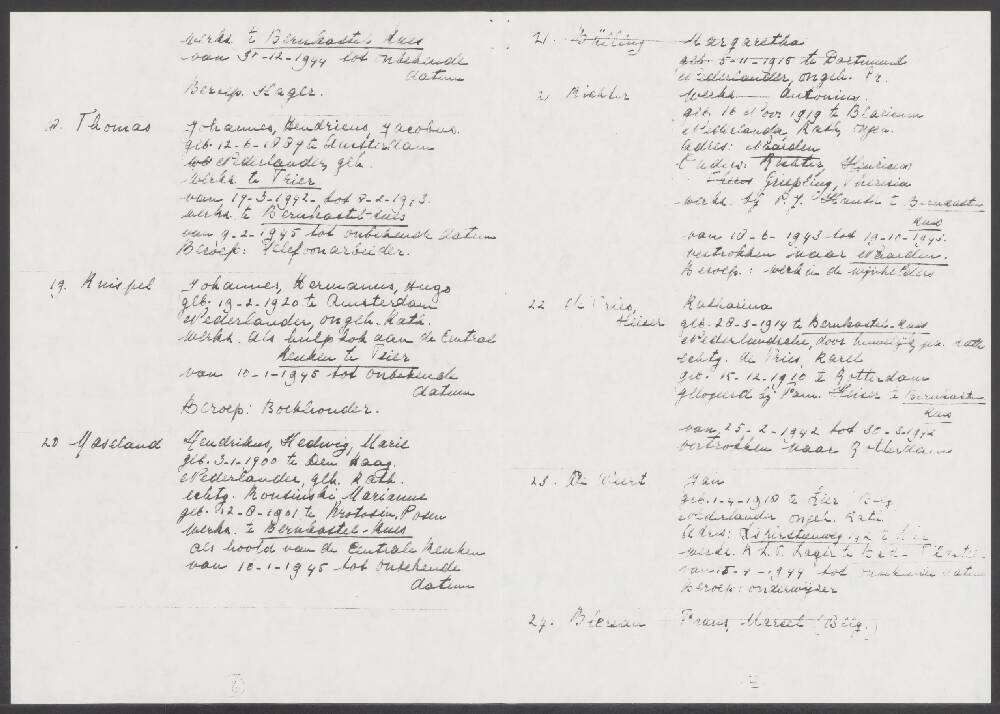 werkz. te Bernkastel-Kues
van 30-12-1944 tot onbekende
datum
Beroep: Slager.
18. Thomas Johannes, Hendricus, Jacobus.
geb. 12-6-1884 te Amsterdam
Nederlander, geh.
werkz. te Trier
van 17-3-1942- tot 8-2-1943.
werkz. te Bernkastel-Kues
van 9-2-1945 tot onbekende datum
Beroep: Telefoonarbeider.
19. Knispel Johannes, Hermannus, Hugo
geb. 19-2-1920 te Amsterdam
Nederlander, ongeh. Kath.
werkz. als hulpkok aan de Central
keuken te Trier
van 10-1-1945 tot onbekende
datum
Beroep: Boekhouder.
20 Maseland Hendrikus, Hedwig, Marie
geb. 3-1-1900 te Den Haag.
Nederlander, geh. Kath.
echtg. Rousinski Marianne
geb. 12-8-1901 te Krotosin, Posen
werkz. te Bernkastel-Kues
als hoofd van de Centrale Keuken
van 10-1-1945 tot onbekende
datum
21. Margaretha
geb. 5-11-1915 te Dortmund
Nederlander, ongeh. Pr.
21 Richter werkz. Antonius.
geb. 16 Nov 1919 te Blaricum
Nederlander Kath. ongeh.
adres: Naarden
Ouders: Richter, Hinricus
Griepling, Theresia
werkz. bij P.J. te Bernkastel
Kues
van 10-6-1943 tot 19-10-1943.
vertrokken naar Naarden.
Beroep.: werk in de wijnkelders
22 de Vries, Katharina
Hüser geb. 28-3-1914 te Bernkastel-Kues
Nederlandsche, door huwelijk, Kath
echtg. de Vries, Karel
geb. 15-12-1910 te Rotterdam
gelogeerd bij Fam. Hüser te Bernkastel
Kues
van 25-2-1942 tot 30-3-1942
vertrokken naar Rotterdam
23. De Weert Jan
geb. 1-4-1918 te Lier Belg
Nederlander ongeh. Kath.
Adres: te Lier
werkz. Lager te
van 15-4-1944 tot onbekende datum
Beroep: onderwijzer
24. Frans, Marcel (Belg.)